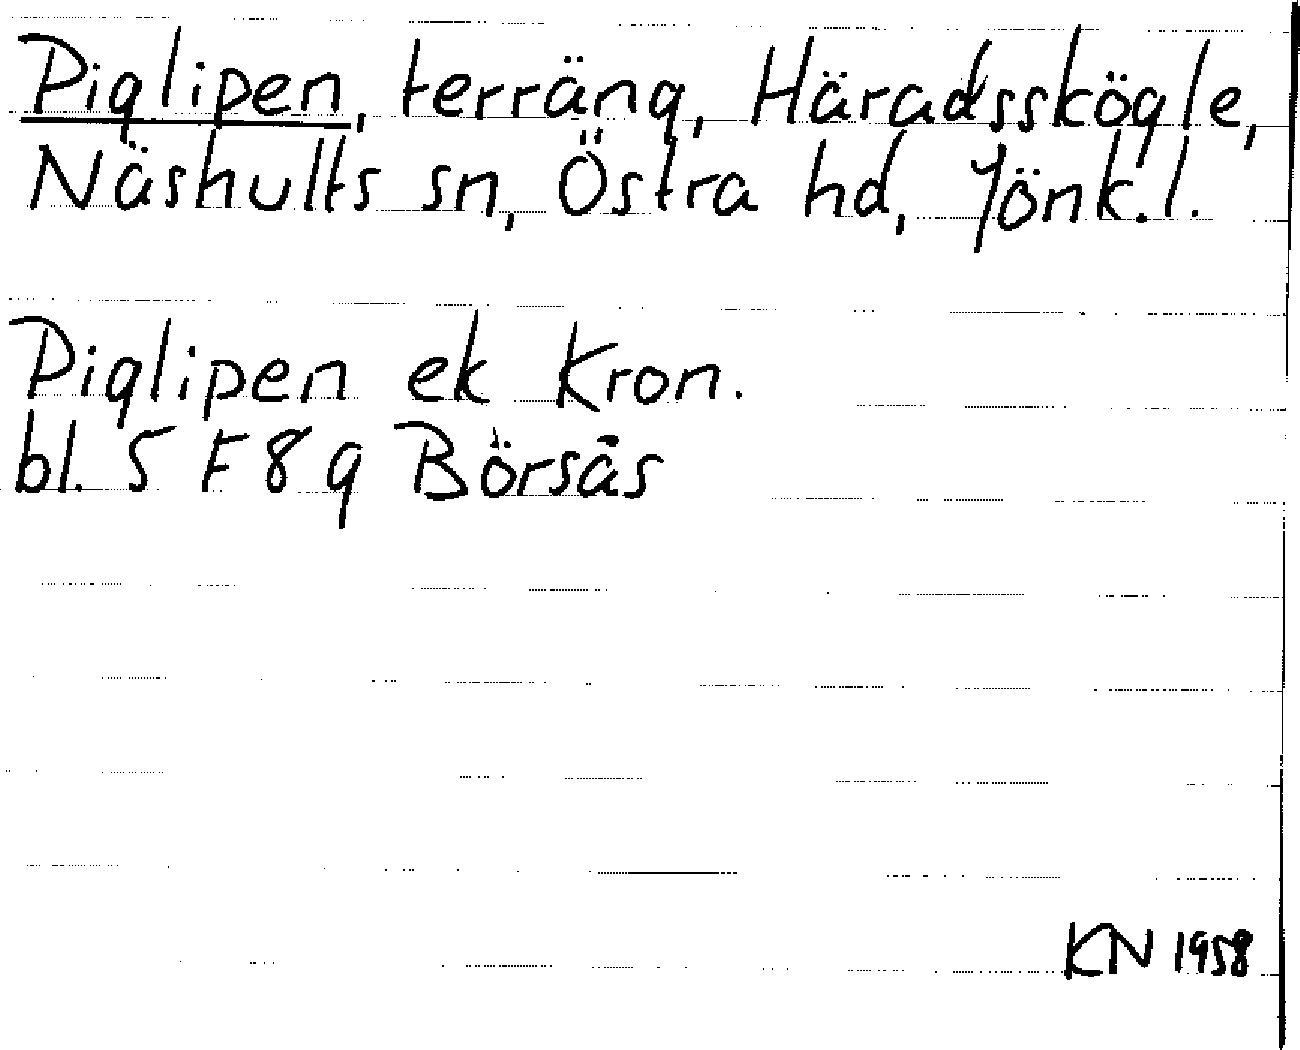 Piglipen, terräng, Häradsskögle,
Näshults sn, Östra hd, Jönk.l.
Piglipen ek Kron.
bl. 5 F 8 g Börsås
KN 1958